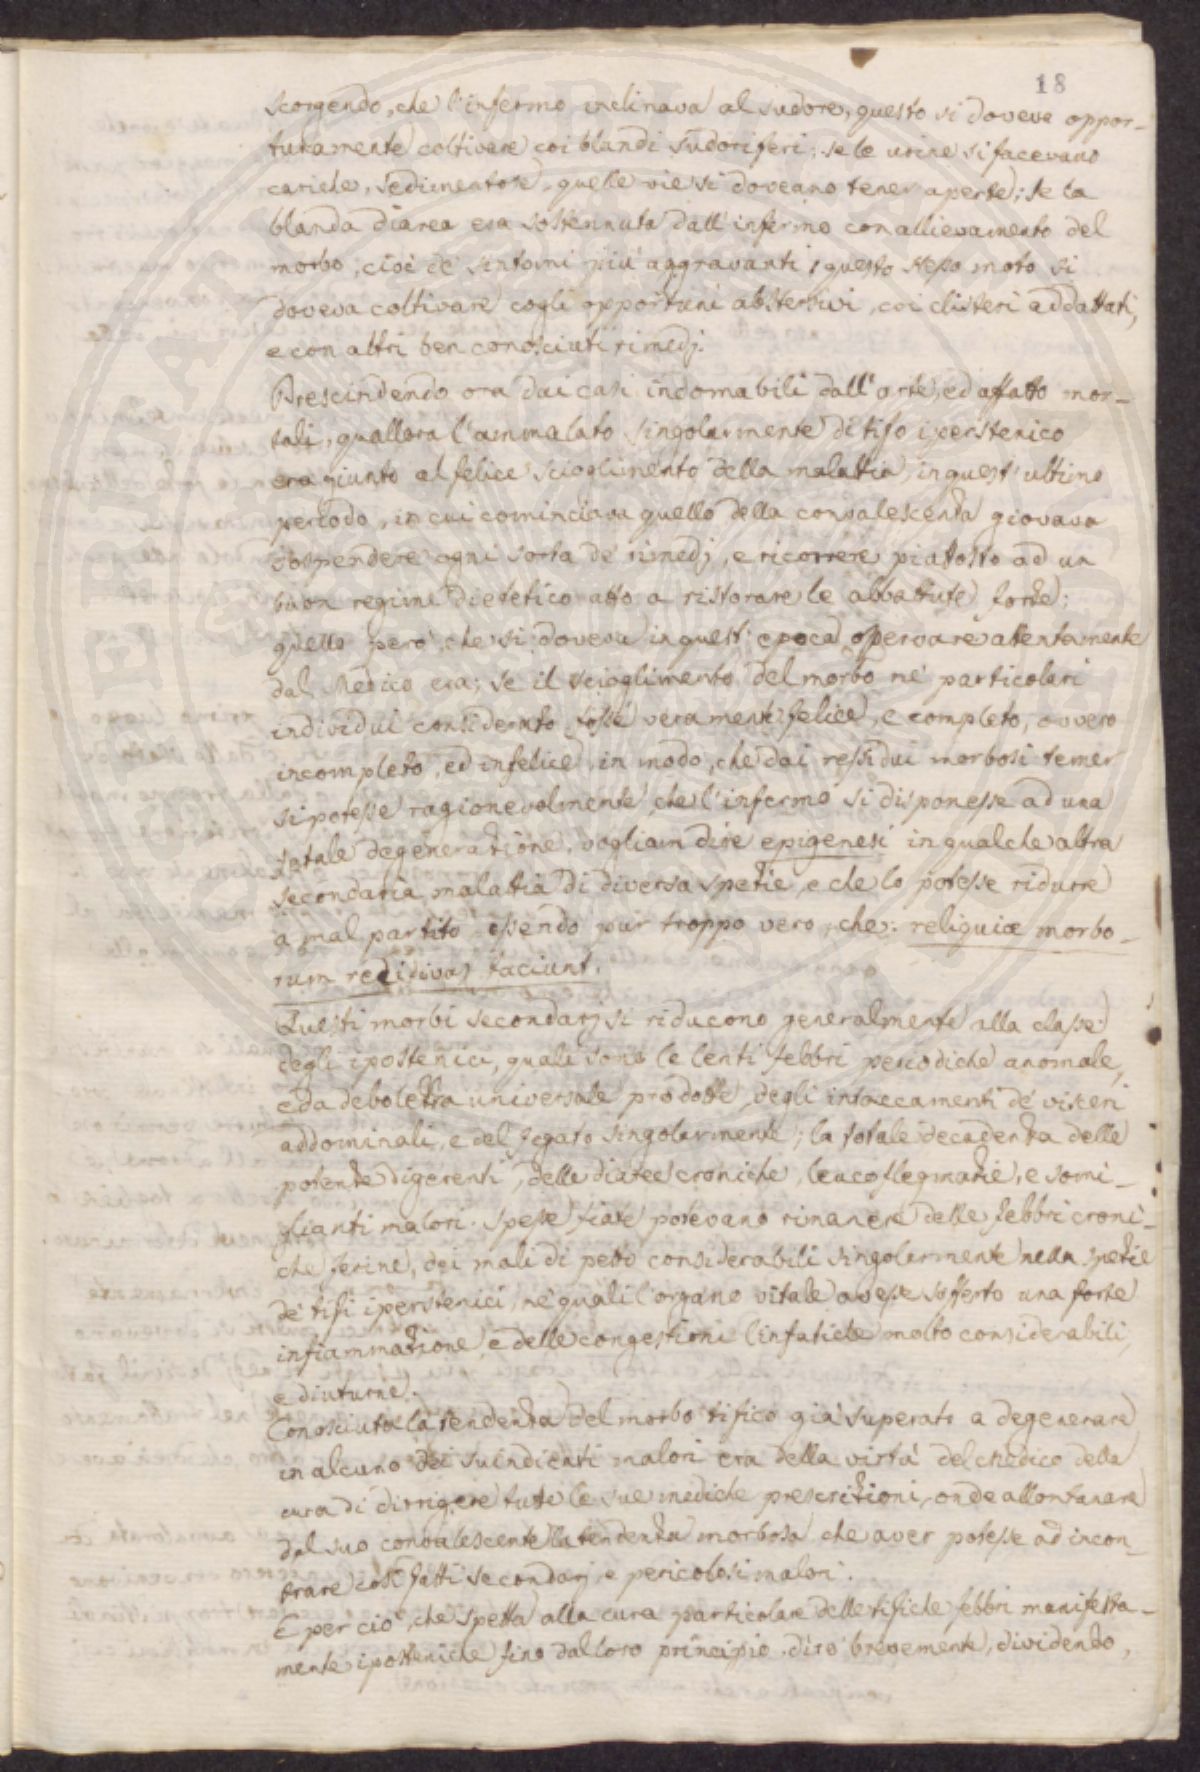 18
scorgendo, che l'infermo inclinava al sudore, questo si doveva oppor-
tunamente coltivare coi blandi sudoriferi; se le urine si facevano
cariche, sedimentose, quelle vie si doveano tener aperte; se la
blanda diarea era sostennuta dall'infermo con allievamento del
morbo, cioè de' sintomi più aggravanti, questo stesso moto si
doveva coltivare cogli opportuni abstersivi, coi clisteri addattati,
e con altri ben conosciuti rimedj.
Prescindendo ora dai casi indomabili dall'arte, ed affatto mor-
tali, quallora l'ammalato singolarmente di tifo iperstenico
era giunto al felice scioglimento della malattia, in quest'ultimo
periodo, in cui cominciava quello della convalescenza giovava
sospendere ogni sorta de' rimedj, e ricorrere piuttosto ad un
buon regime dietetico atto a ristorare le abbattute forze;
quello però che si doveva in quest'epoca osservare attentamente
dal Medico era; se il scioglimento del morbo ne' particolari
individui considerato fosse veramente felice, e completo, ovvero
incompleto, ed infelice, in modo, che dai ressidui morbosi temer
si potesse ragionevolmente, che l'infermo si disponesse ad una
totale degenerazione, vogliam dire epigenesi in qualche altra
secondaria malattia di diversa spezie, e che lo potesse ridurre
a mal partito, essendo pur troppo vero, che: reliquiæ morbo-
rum redidivas faciunt.
Questi morbi secondarj si riducono generalmente alla classe
degli ipostenici, quali sono le lenti febbri periodiche anomale,
e da debolezza universale prodotte, degli intaccamenti de' visceri
addominali, e del fegato singolarmente; la totale decadenza delle
potenze digerenti, delle diaree croniche, leucoflegmazie, e somi-
glianti malori. Spesse fiate potevano rimanere delle febbri croni-
che ferine, dei mali di petto considerabili singolarmente nella spezie
de' tifi iperstenici, ne' quali l'organo vitale avesse sofferto una forte
infiammazione, e delle congestioni linfatiche molto considerabili,
e diuturne.
Conosciuta la tendenza del morbo tifico già superato a degenerare
in alcuno dei suindicati malori era della virtù del Medico della
cura di dirrigere tutte le sue mediche prescrizioni, onde allontanare
dal suo convalescente la tendenza morbosa che aver potesse ad incon-
trare così fatti secondarj, e pericolosi malori.
E per ciò, che spetta alla cura particolare delle tifiche febbri manifesta-
mente iposteniche fino dal loro principio dirò brevemente, dividendo,